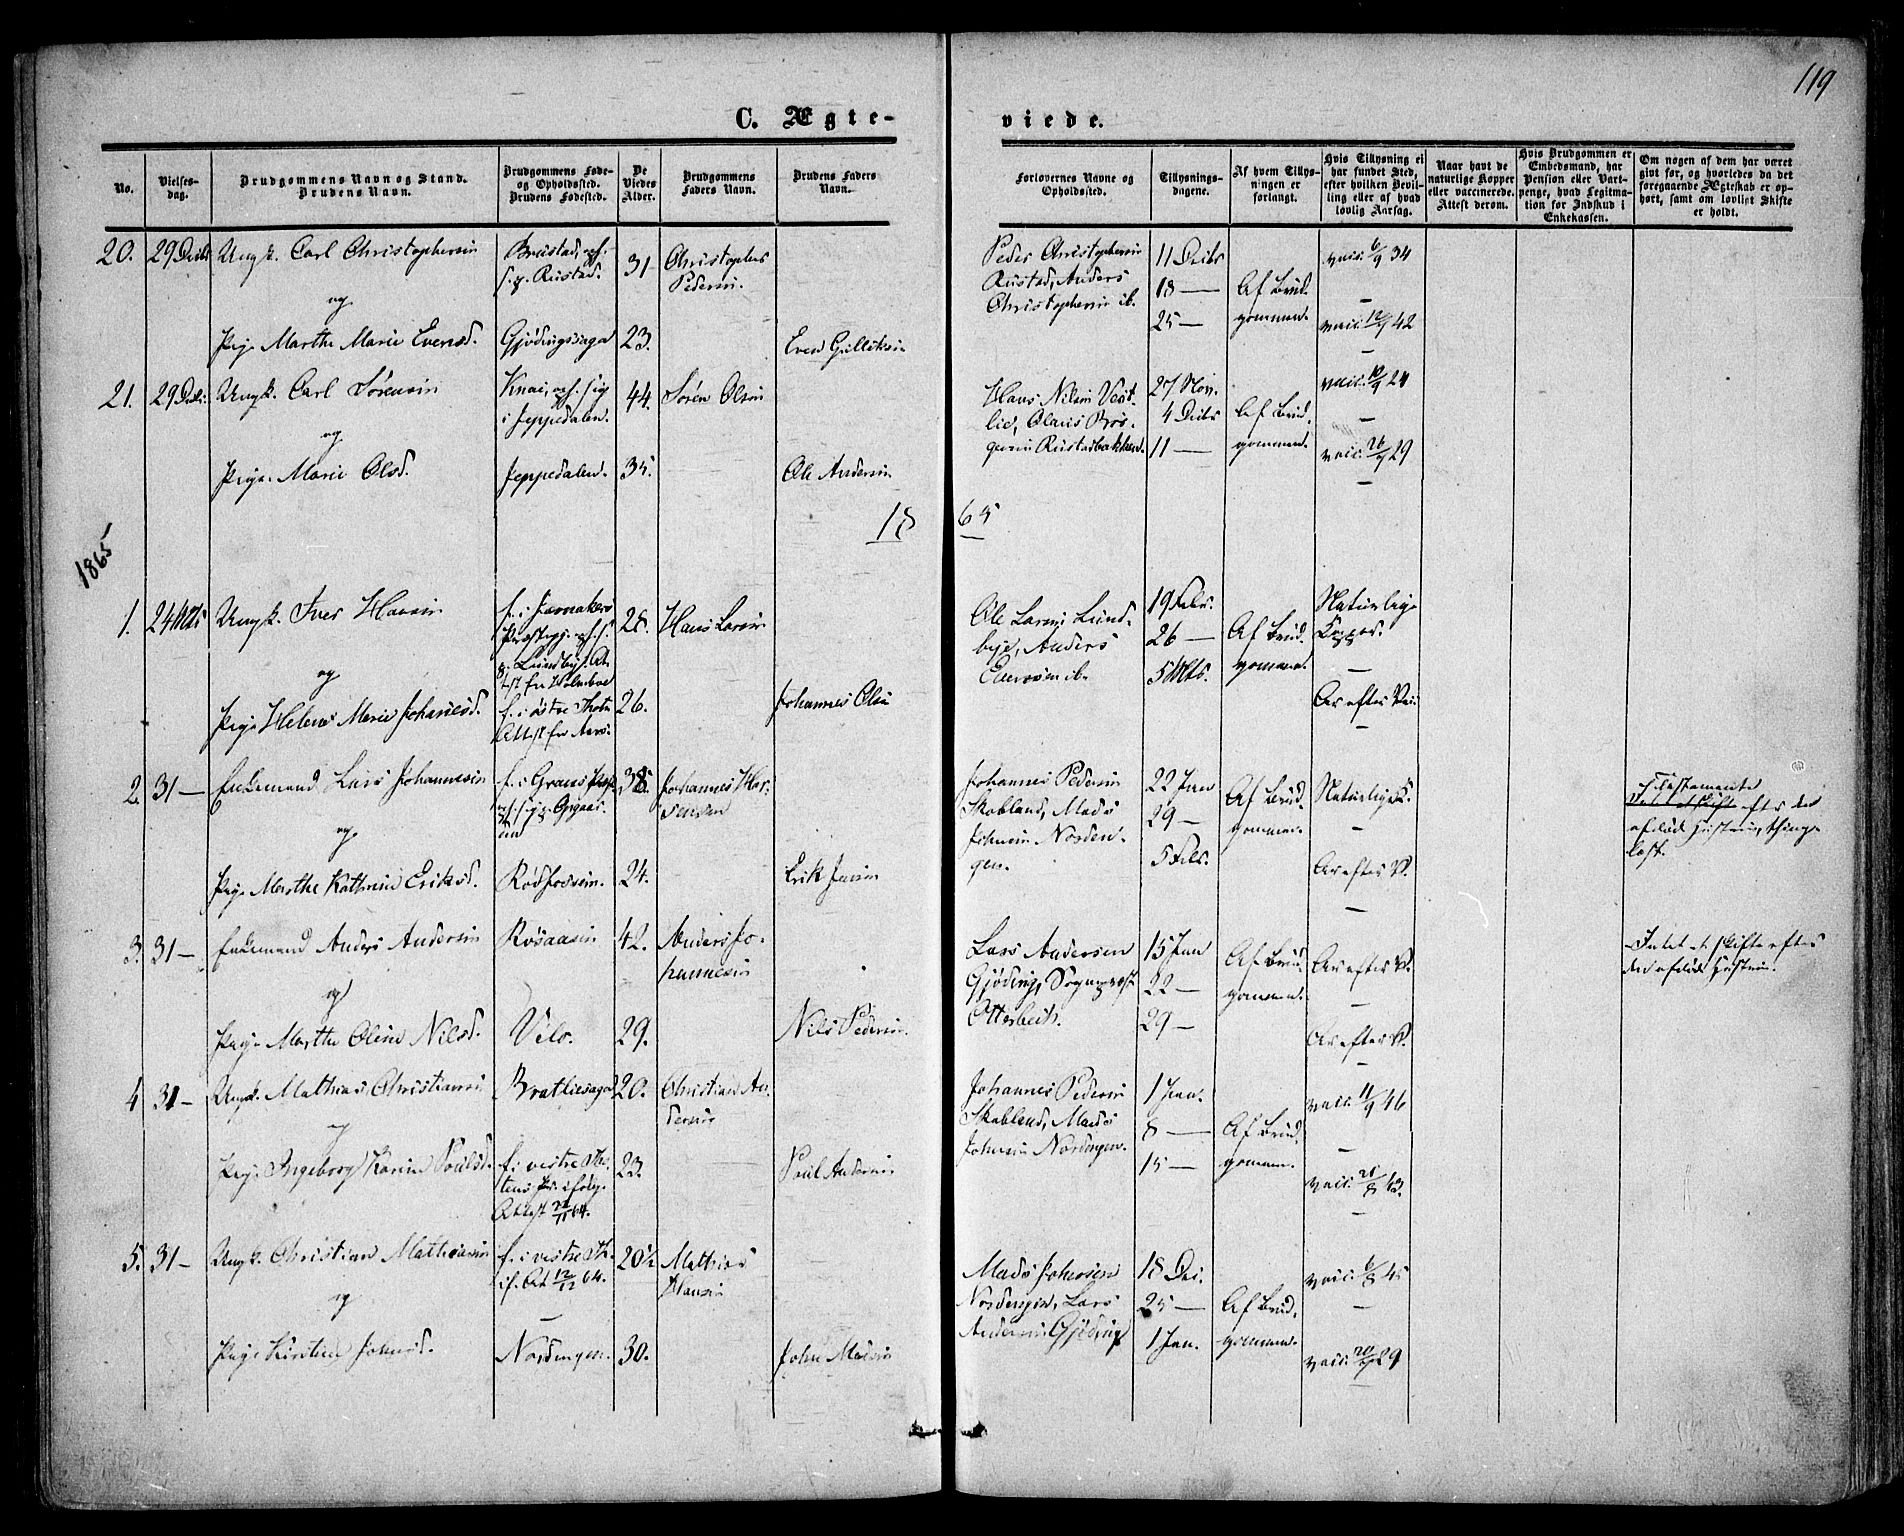 119
C. Ægte-
viede.
No.
Vielses-
dag.
Brudgommens Navn og Stand.
Brudens Navn.
Brudgommens Føde-
og Opholdssted.
Brudens Fødested.
De
Viedes
Alder.
Brudgommens
Faders Navn.
Brudens Faders
Navn.
Forlovernes Navne og
Opholdssted.
Tillysnings-
dagene.
Af hvem Tillys-
ningen er
forlangt.
Hvis Tillysning ei
har fundet Sted,
efter hvilken Bevil-
ling eller af hvad
lovlig Aarsag.
Naar havt de
naturlige Kopper
eller vaccinerede.
Attest derom.
Hvis Brudgommen er
Embedsmand, har
Pension eller Vart-
penge, hvad Legitma-
tion for Indskud i
Enkekassen.
Om nogen af dem har været
givt før, og hvorledes da det
foregaaende Ægteskab er op-
hørt, samt om lovligt Skifte
er holdt.
20. 29 Decbr Ungk. Carl Christophersen
og
Pige Marthe Marie Evensd.
Rustad.
Gjødingseага
31
23.
Christopher
Pedersen.
Even Gulliksen
Peder Christophersen
Rustad, Anders
Christophersen ib.
11 Decbr
18 —
25 —
Af Brud-
gommen.
vacc. 6/9 34
—
vacc. 12/9 42
—
21. 29 Decbr Ungk. Carl Sørensen
og
Pige Marie Olsd.
i Jeppedalen.
Jeppedalen.
44.
35.
Søren Olsen
Ole Andersen
Hans Nilsen Vest-
lie, Olaus Bør-
gersen Rustadbakken.
27 Nov.
4 Decbr
11 —
Af Brud-
gommen.
—
—
1865
1865
1. 24 Mts Ungk. Iver Hansen
og
Pige Helene Marie Johannesd.
f. i Jevnakers
f. i østre Thoten
28.
26.
Hans Larsen.
Johannes Olsen
Ole Larsen Lund-
bye, Anders
ib.
19 Febr.
26 —
5 Mts.
Af Brud-
gommen.
Naturlige
Kopper.
—
Ar efter Vac.
2. 31 — Enkemand Lars Johannesen
og
Pige Marthe Kathrine Eriksd.
f. i Grans
Rødfossen.
24.
Johannes
Erik Jensen
Johannes Pedersen
Skobland, Mads
Johnsen Norden-
gen.
22 Jan
29 —
5 Febr.
Af Brud-
gommen.
Naturlige K.
—
Ar efter V.
—
afdøde Hustrue, thing-
læst.
3. 31 — Enkemand Anders Andersen
og
Pige Marthe Oline Nilsd.
Rosaasen
Velo.
42.
29.
Anders Jo-
hannesen
Nils Pedersen.
Lars Andersen
Gjøding, Sogneprest
Otterbech.
15 Jan
22 —
29 —
Af Brud-
gommen.
Ar efter V.
—
Ar efter V.
Intet at skifte efter
den afdøde Hustrue.
4 31 — Ungk. Mathias Christiansen
og
Pige Ingeborg Karine Poulsd.
Brathieeага
f. i vestre Tho-
tens
Attest 22/11 64.
20.
23.
Christian An-
dersen
Poul Andersen
Johannes Pedersen
Skobland, Mads
Johnsen Nordengen.
1 Jan.
8 —
15 —
Af Brud-
gommen.
vacc. 11/9 46
—
—
5. 31 — Ungk. Christian Mathiasen
og
Pige Kirstine Johnsd.
f. i vestre Th.
12/12 64.
—
Nordengen.
20½
30.
Mathias
Hansen
John Madsen
Mads Johnsen
Nordengen, Lars
Andersen Gjøding
18 Dec.
25 —
1 Jan.
Af Brud-
gommen.
vacc. 6/8 45
—
—